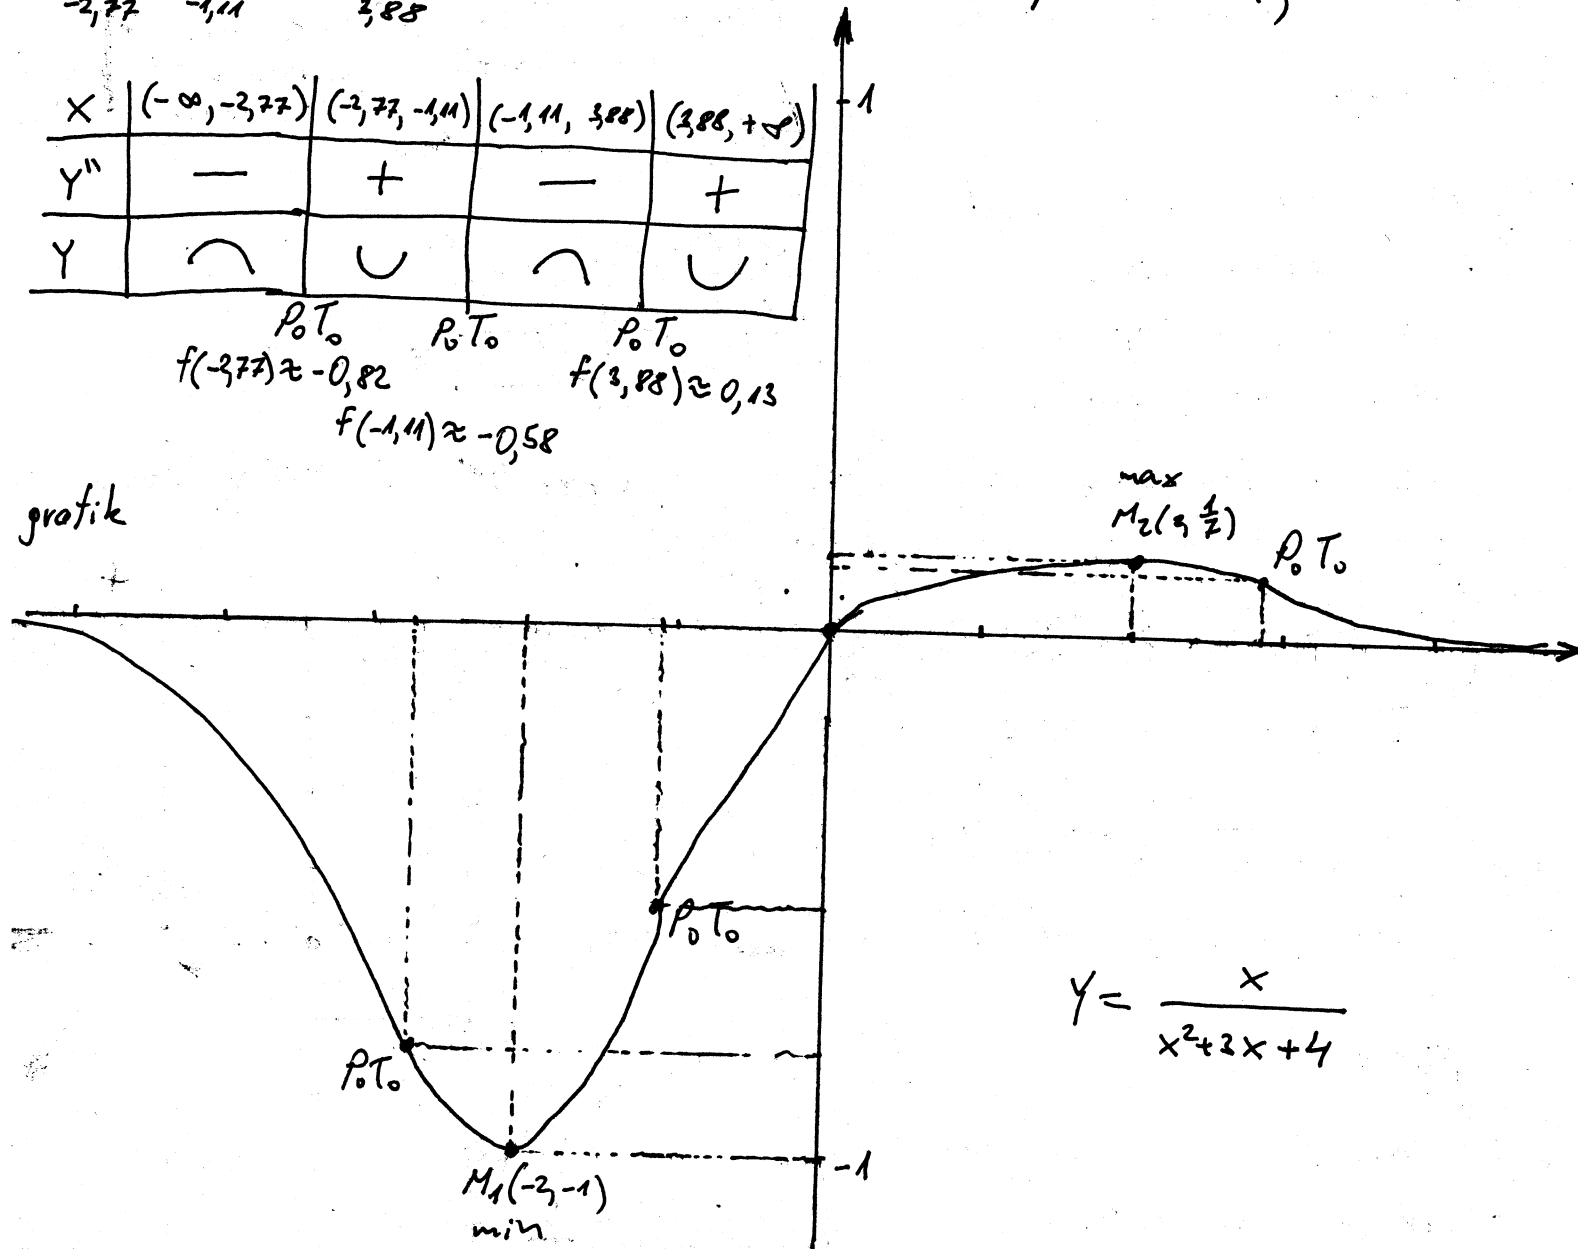 -2,77 -1,11 3,88
X (-∞, -2,77) (-2,77, -1,11) (-1,11, 3,88) (3,88, +∞)
Y" — + — +
Y ∩ ∪ ∩ ∪
P₀T₀ P₀T₀ P₀T₀
f(-2,77) ≈ -0,82 f(3,88) ≈ 0,13
f(-1,11) ≈ -0,58
grafik
1
max
M₂(3, 1/7)
P₀T₀
P₀T₀
P₀T₀
-1
M₁(-2,-1)
min
Y = x/(x²+3x+4)